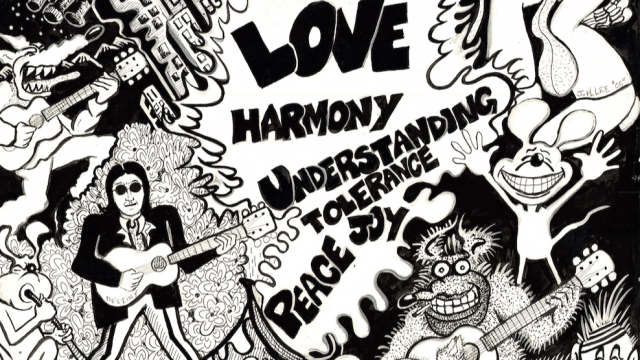 LOVE
HARMONY
UNDERSTANDING
TOLERANCE
PEACE JOY